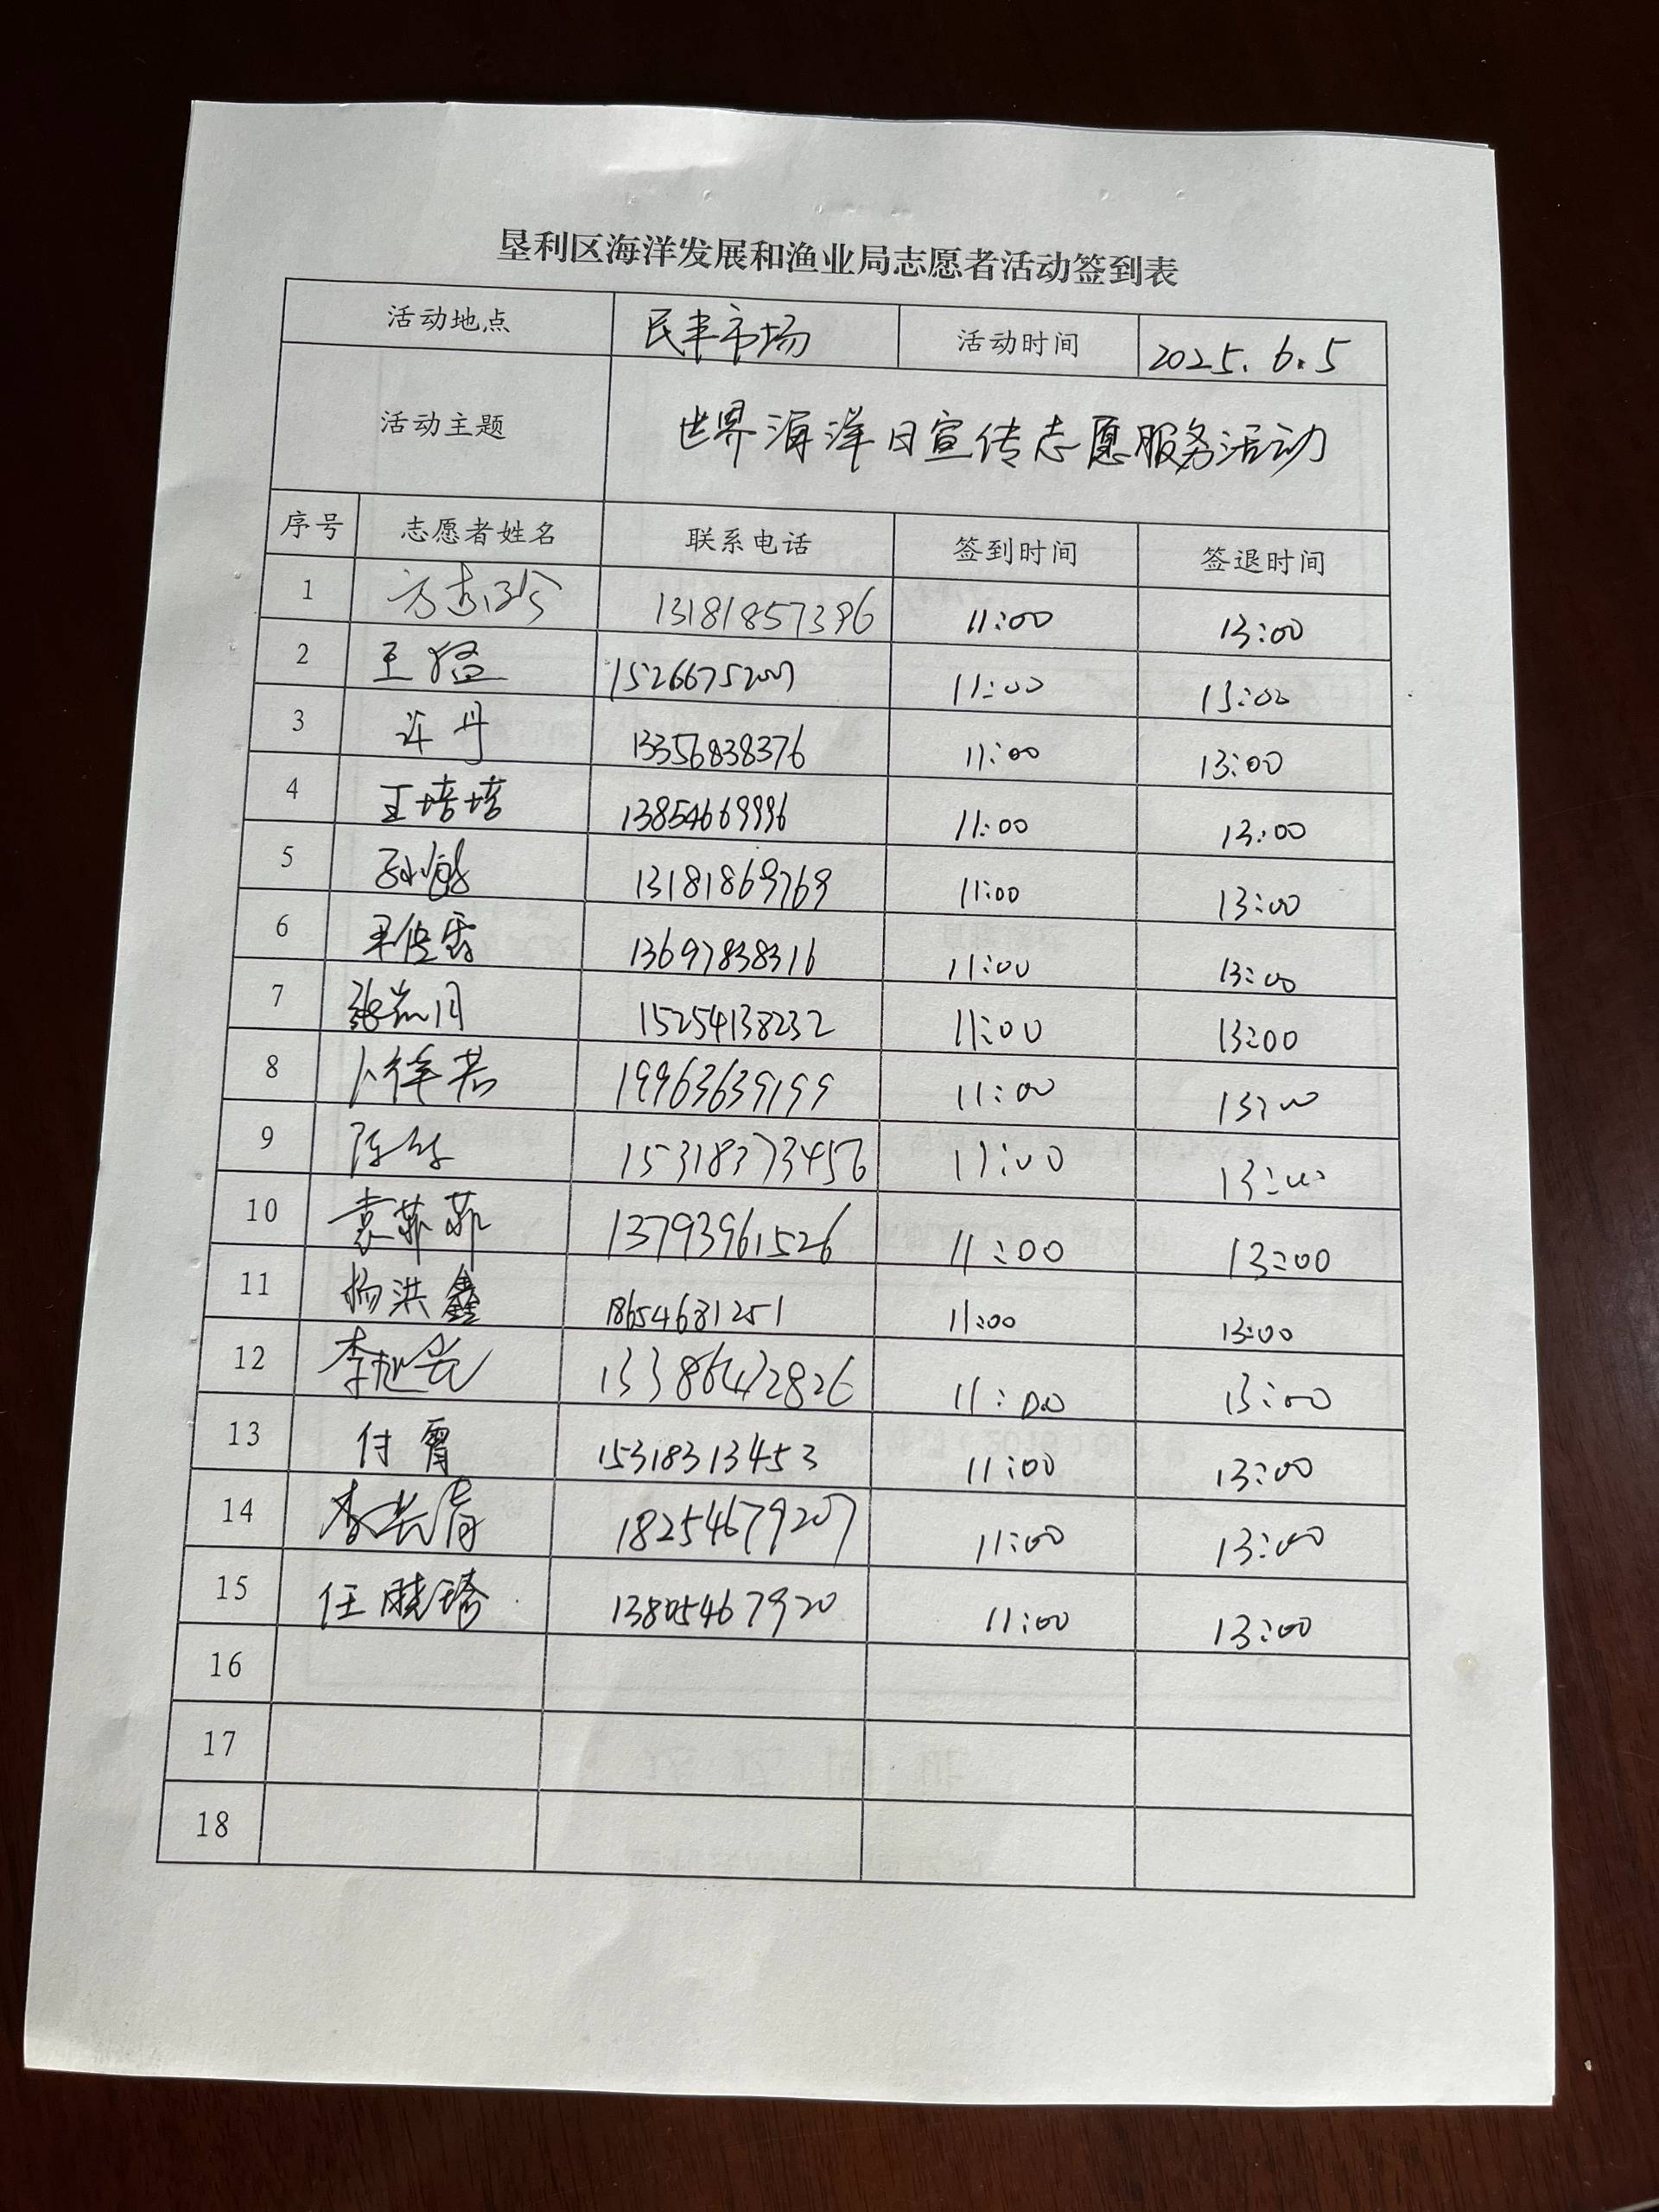 垦利区海洋发展和渔业局志愿者活动签到表
活动地点 民丰市场 活动时间 2025.6.5
活动主题 世界海洋日宣传志愿服务活动
序号 志愿者姓名 联系电话 签到时间 签退时间
1 13181857396 11:00 13:00
2 王猛 15266752007 11:00 13:00
3 许丹 13356838376 11:00 13:00
4 王培培 13854669996 11:00 13:00
5 13181869769 11:00 13:00
6 13697838316 11:00 13:00
7 15254138232 11:00 13:00
8 19963639199 11:00 13:00
9 15318373456 11:00 13:00
10 袁菲菲 13793961526 11:00 13:00
11 杨洪鑫 18654681251 11:00 13:00
12 11:00 13:00
13 付霄 15318313453 11:00 13:00
14 18254679207 11:00 13:00
15 任晓琦 13805467920 11:00 13:00
16
17
18